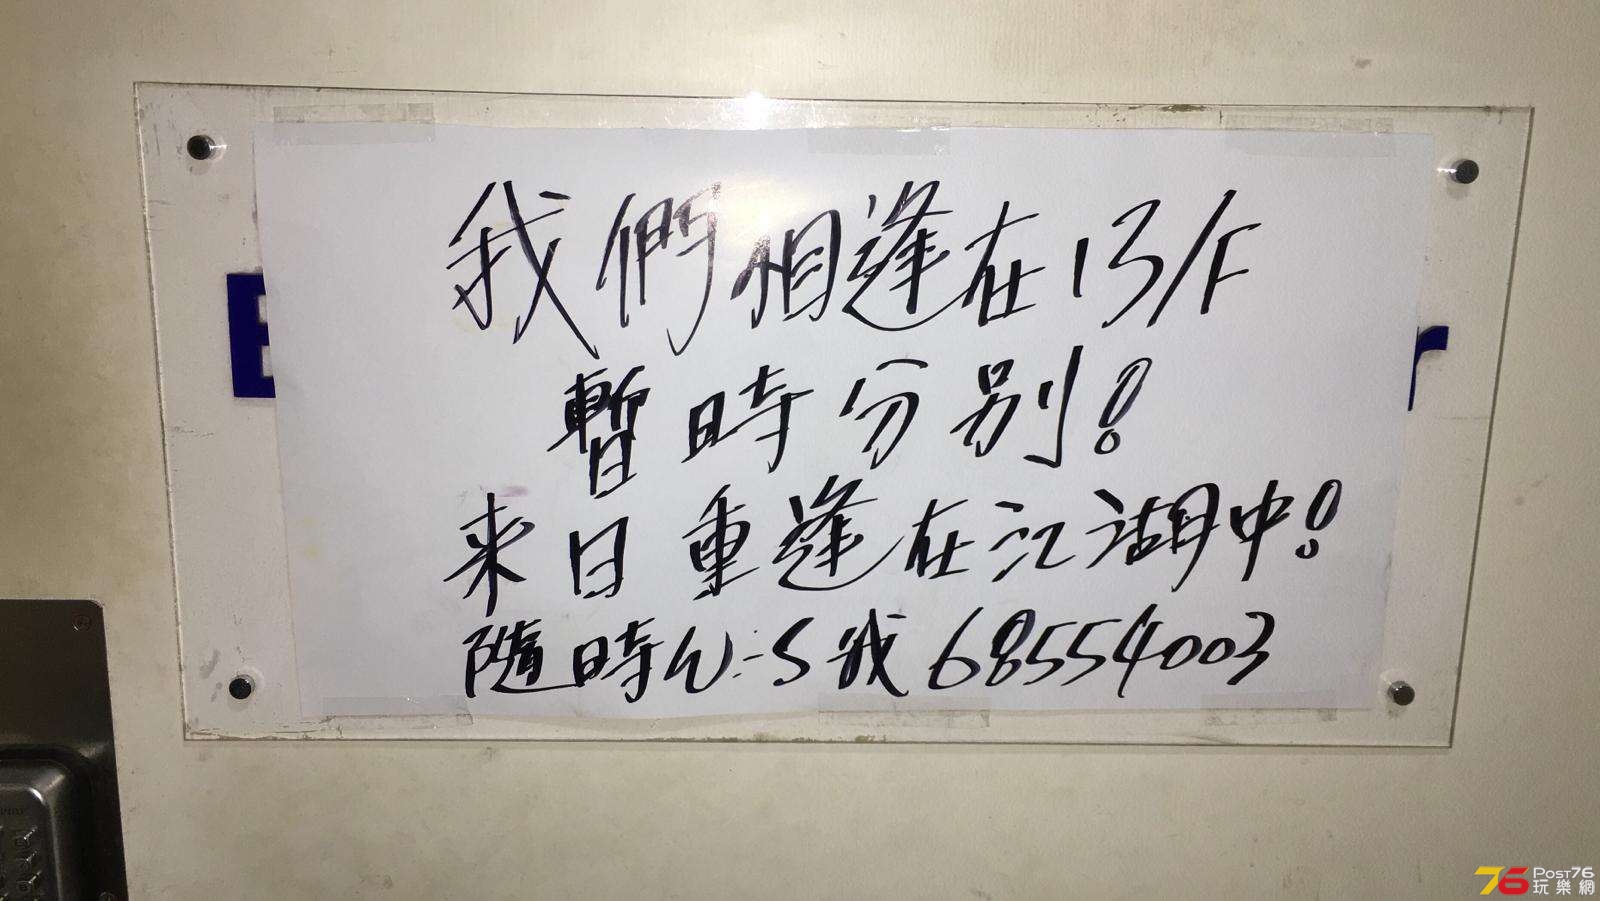 我們相逢在13/F
暫時分別!
来日重逢在江湖中!
隨時W:S我 68554003
E
r
76 POST76
玩樂網